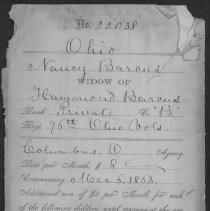 No. 22038
Ohio
Nancy Barcus
WIDOW OF
Haymond Barcus
Rank Private Co. "B"
Regt. 76th Ohio Vols.
Columbus, O Agency.
Rate per Month $ 8
Commencing Mar 6, 1863.
Additional sum of $2 per Month for each
of the following children until arriving at the age